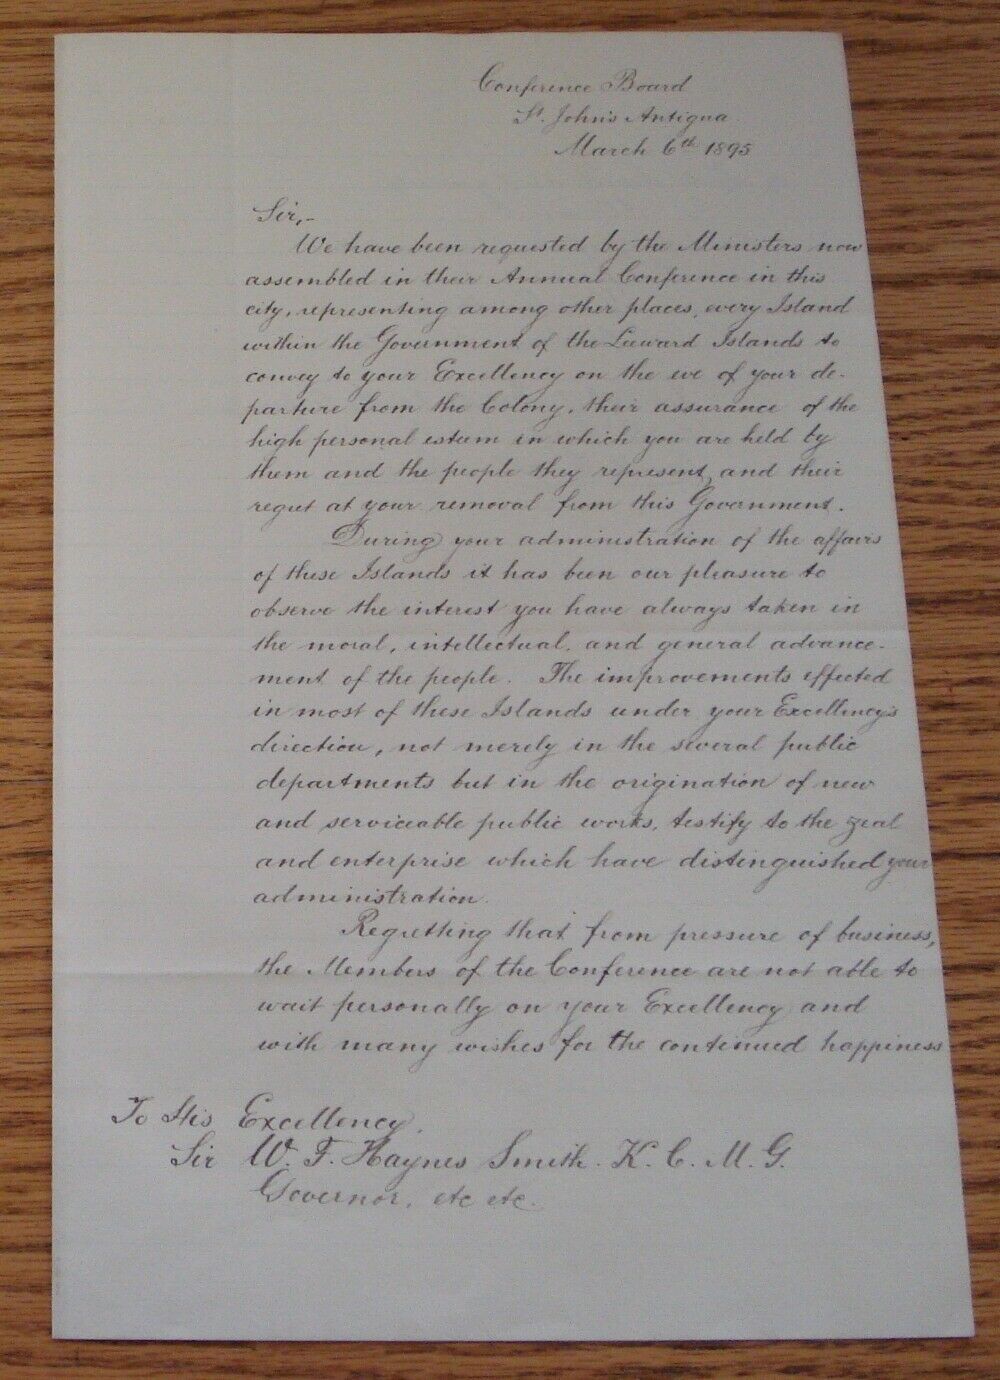 Conference Board
St. John's Antigua
March 6th 1895
Sir,-
We have been requested by the Ministers now
assembled in their Annual Conference in this
city, representing among other places, every Island
within the Government of the Leeward Islands to
convey to your Excellency on the eve of your de-
parture from the Colony, their assurance of the
high personal esteem in which you are held by
them and the people they represent, and their
regret at your removal from this Government.
During your administration of the affairs
of these Islands it has been our pleasure to
observe the interest you have always taken in
the moral, intellectual, and general advance-
ment of the people. The improvements effected
in most of these Islands under your Excellency's
direction, not merely in the several public
departments but in the origination of new
and serviceable public works, testify to the zeal
and enterprise which have distinguished your
administration.
Regretting that from pressure of business,
the Members of the Conference are not able to
wait personally on your Excellency and
with many wishes for the continued happiness
To His Excellency.
Sir W. F. Haynes Smith. K. C. M. G.
Governor, etc etc.